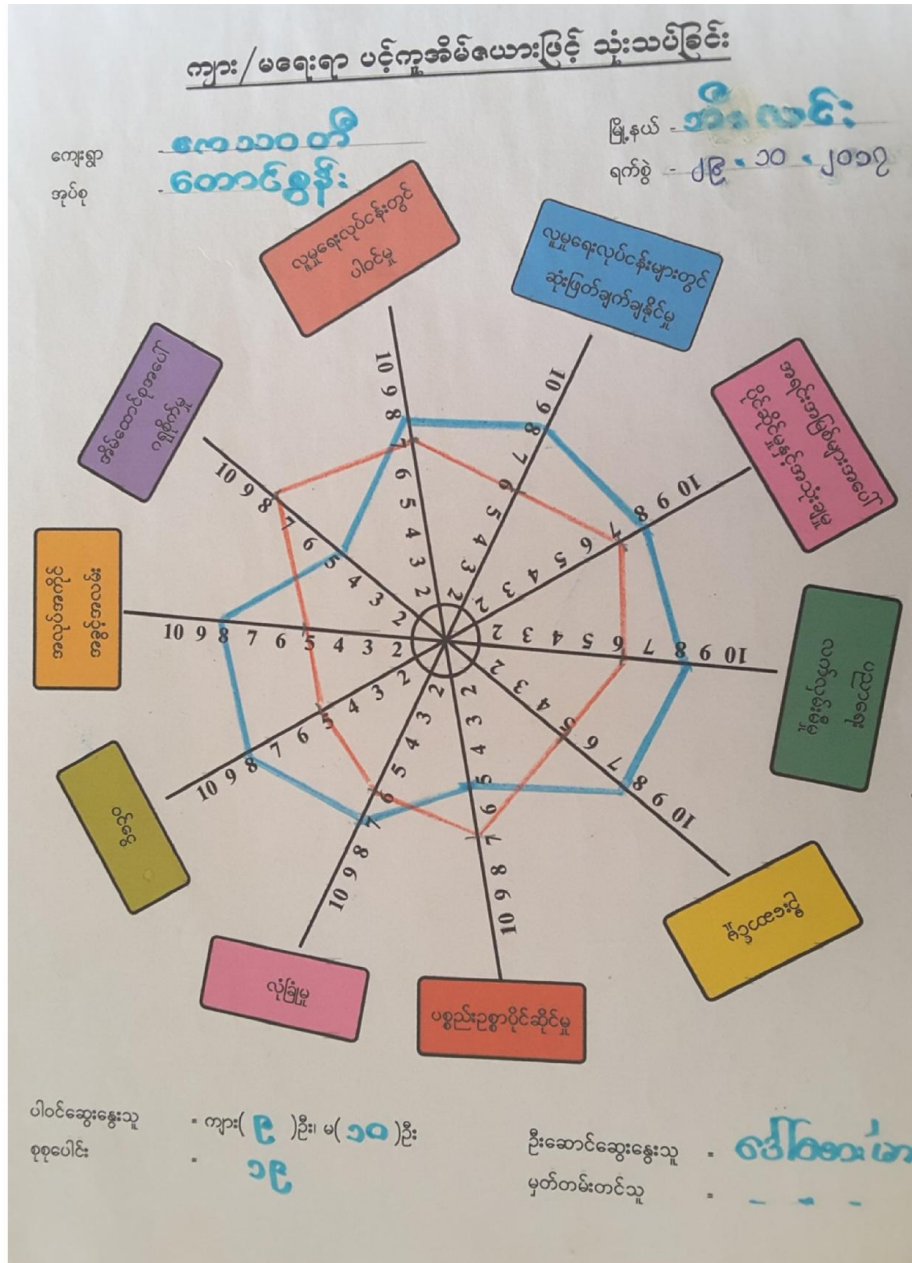 ကျား/မရေးရာ ပင့်ကူအိမ်ဇယားဖြင့် သုံးသပ်ခြင်း
ကျေးရွာ - ကေသဝတီ
မြို့နယ် - ဘီးလင်း
အုပ်စု - တောင်စွန်း
ရက်စွဲ - ၂၉ . ၁၀ . ၂၀၁၇
လူမှုရေးလုပ်ငန်းတွင်
ပါဝင်မှု
လူမှုရေးလုပ်ငန်းများတွင်
ဆုံးဖြတ်ချက်ချနိုင်မှု
အရင်းအမြစ်များအပေါ်
ပိုင်ဆိုင်မှုနှင့်အသုံးချမှု
ပညာရေး
လက်လှမ်းမီမှု
ပစ္စည်းဥစ္စာပိုင်ဆိုင်မှု
လုံခြုံမှု
ဝင်ငွေ
အလုပ်အကိုင်
အခွင့်အလမ်း
အိမ်ထောင်စုအပေါ်
ဂရုစိုက်မှု
10 9 8 7 6 5 4 3 2
10 9 8 7 6 5 4 3 2
10 9 8 7 6 5 4 3 2
10 9 8 7 6 5 4 3 2
10 9 8 7 6 5 4 3 2
10 9 8 7 6 5 4 3 2
10 9 8 7 6 5 4 3 2
10 9 8 7 6 5 4 3 2
10 9 8 7 6 5 4 3 2
10 9 8 7 6 5 4 3 2
ပါဝင်ဆွေးနွေးသူ - ကျား( ၉ )ဦး၊ မ( ၁၀ )ဦး
စုစုပေါင်း - ၁၉
ဦးဆောင်ဆွေးနွေးသူ -
မှတ်တမ်းတင်သူ - - - -